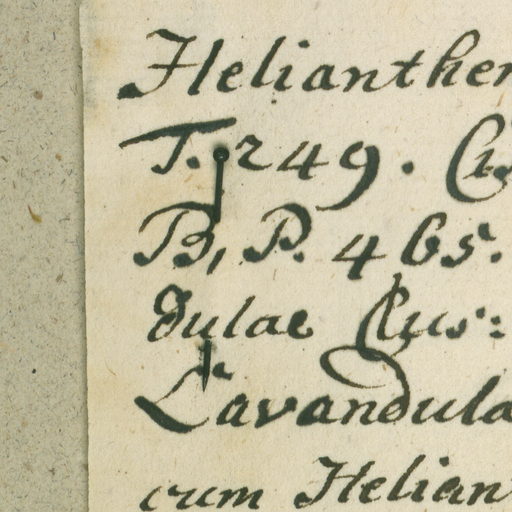 Helianthem
T. 249. Cis
B, P. 465.
dulae Clus:
Lavandula
cum Helian